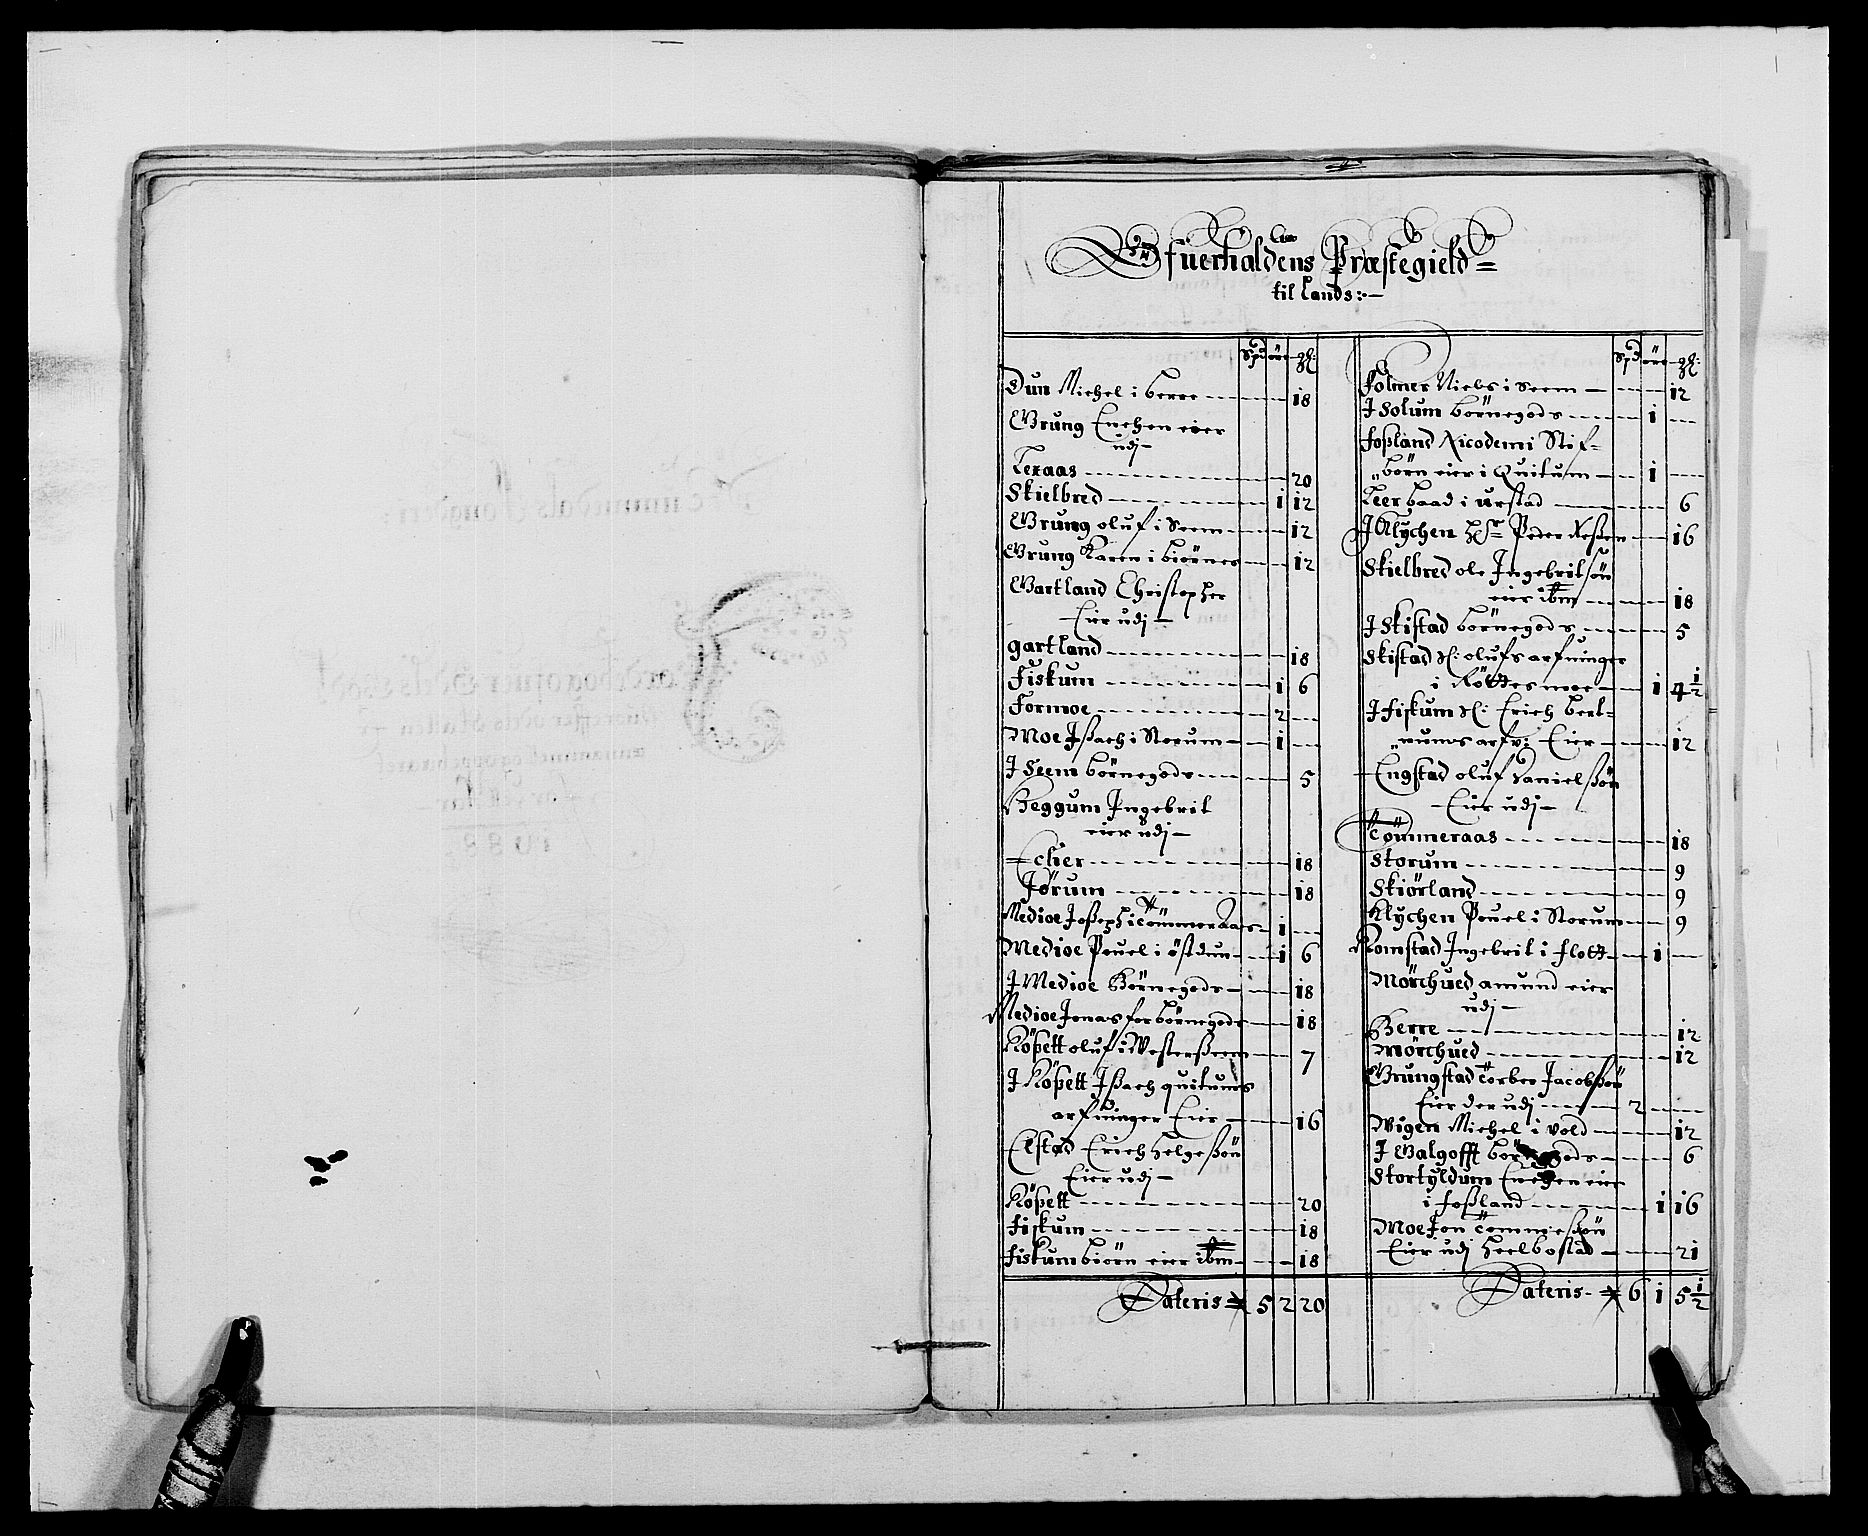 Ofuerhaldens Præstegield
til Lands:
Spd öre gl:
Dun Michel i berre 18
Grung Enchen eier
udj
Lexaas 20
Skielbred 1 12
Grung oluf i Seem 12
Grung Karen i biörnes 12
Gartland Christopher
Eier udj
gartland 18
Fiskum 1 6
Formoe 2
Moe Jßach i Storum 1
J Seem börnegods 5
Heggum Jngebrit
eier udj
Echer 18
Jörum 18
Medioe Joßeph i Tömmeraas 1
Medioe Pouel i östdun 1 6
J Medioe Börnegods 18
Medioe Jonas for börnegods 18
Rößett oluf i Westerßeem 7
J Rößett Jßach quitums
arfninger Eier 16
Elstad Erich Helgeßön
Eier udj
Rößett 20
Fiskum 18
Fiskum biörn eier ibm 18
Lateris 5 2 20
Spd öre gl:
Folmer Niels i Seem 12
J Solum börnegods 1
Foßland Nicodemi Stif-
börn eier i Quitum 1
Leer baad i urstad 6
J Klychen Hr Peder 16
Skielbred ole Jngebritsön
eier ibm 18
J Skistad börnegods 5
Skistad Sl: olufs arfuinger
i Röttesmoe 1 4 1/2
J Fiskum Sl: Erich bert-
nums arfv: Eier 12
Engstad oluf Danielßön
Eier udj
Tömmeraas 18
Storum 9
Skiörland 9
Klychen Pouel i Storum 9
Romstad Jngebrit i Flott 1
Mörchued amund eier
udj
Berre 12
Mörchued 12
Grungstad Torber Jacobßön
Eier der udj 2
Wigen Michel i Vold 12
J Galgofft börnegods 6
Stortyldum Enchen eier
i Foßland 1 16
Moe Jon Tommeßön
Eier udj Heelbostad 21
Lateris 6 1 5 1/2